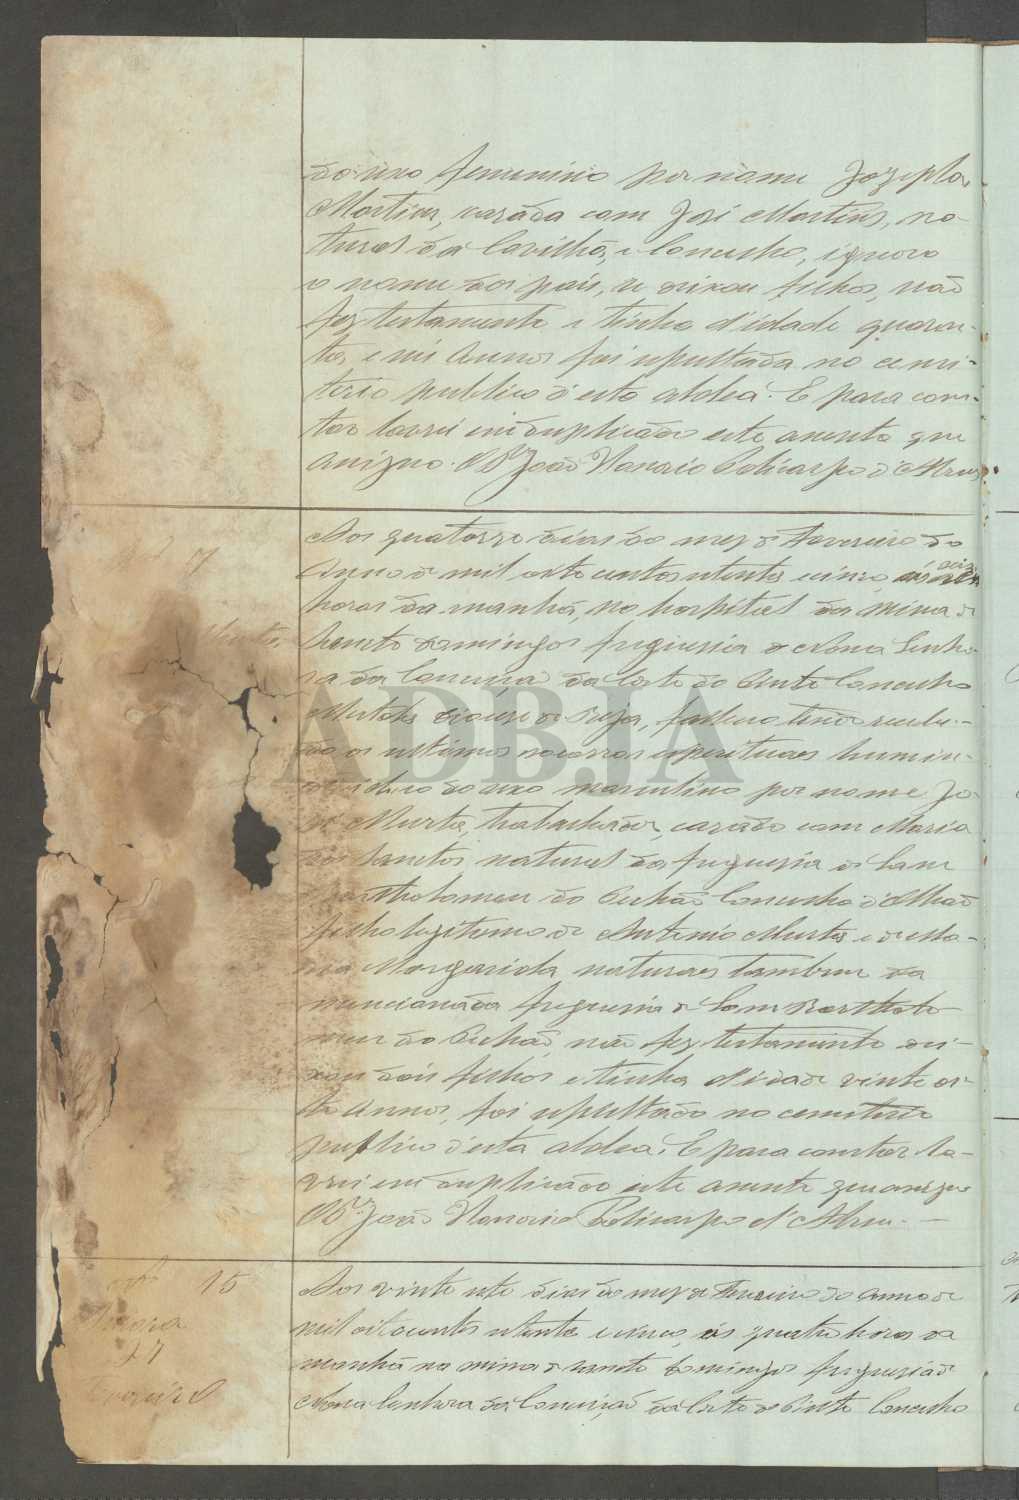 do sexo feminino por nome Jozepha
Martins, casada com José Martins, na-
tural da Covilhã, e Concelho, ignoro
o nome dos pais, e deixou filhos, não
fez testamento e tinha d'idade quaren-
ta, e seis Annos foi sepultada no cemi-
terio publico d'esta aldeia. E para cons-
tar lavrei em duplicado este assento que
assigno. O P.e João Nanario Policarpo d'Abreu.
Aos quatorze dias do mez de Fevereiro do
Anno de mil oito centos oitenta e cinco, ás dez
horas da manhã, no hospital da mina de
Sancto Domingos freguesia de Nossa Senho-
ra da Conceição da Corte do Pinto Concelho
Mertola diocese de Beja, falleceu tendo recebi-
do os ultimos socorros espirituaes hum in-
dividuo do sexo masculino por nome Jo-
sé Murta, trabalhador, casado com Maria
dos Sanctos natural da freguesia de Sam
Bartholomeu do Pechão Concelho d'Olhão
filho legitimo de Antonio Murta e de Ma-
ria Margarida naturaes tambem da
mencionada freguesia de Sam Bartholo-
meu do Pechão, não fez testamento dei-
xou dois filhos e tinha d'idade vinte oi-
to Annos, foi sepultado no cemiterio
publico d'esta aldea. E para constar la-
vrei em duplicado este assento que assigno
O P.e João Nanario Policarpo d'Abreu. —
15
Aos vinte sete dias do mez de Fevereiro do anno de
mil oitocentos oitenta e cinco, ás quatro horas da
manhã na mina de Sancto Domingos freguesia de
Nossa Senhora da Conceição da Corte do Pinto Concelho
27
Fevereiro
ADBJA